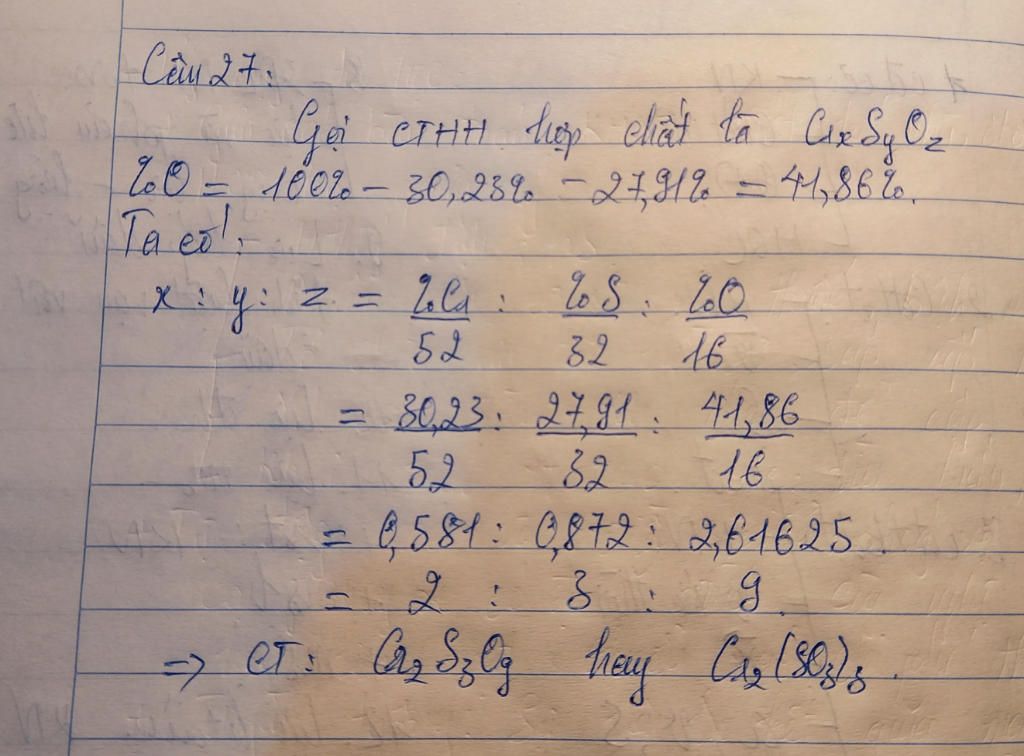 Câu 27:
Gọi CTHH hợp chất là CrxSyOz
%O = 100% - 30,23% - 27,91% = 41,86%.
Ta có:
x : y : z = %Cr/52 : %S/32 : %O/16
= 30,23/52 : 27,91/32 : 41,86/16
= 0,581 : 0,872 : 2,61625.
= 2 : 3 : 9.
=> CT: Cr2S3O9 hay Cr2(SO3)3.